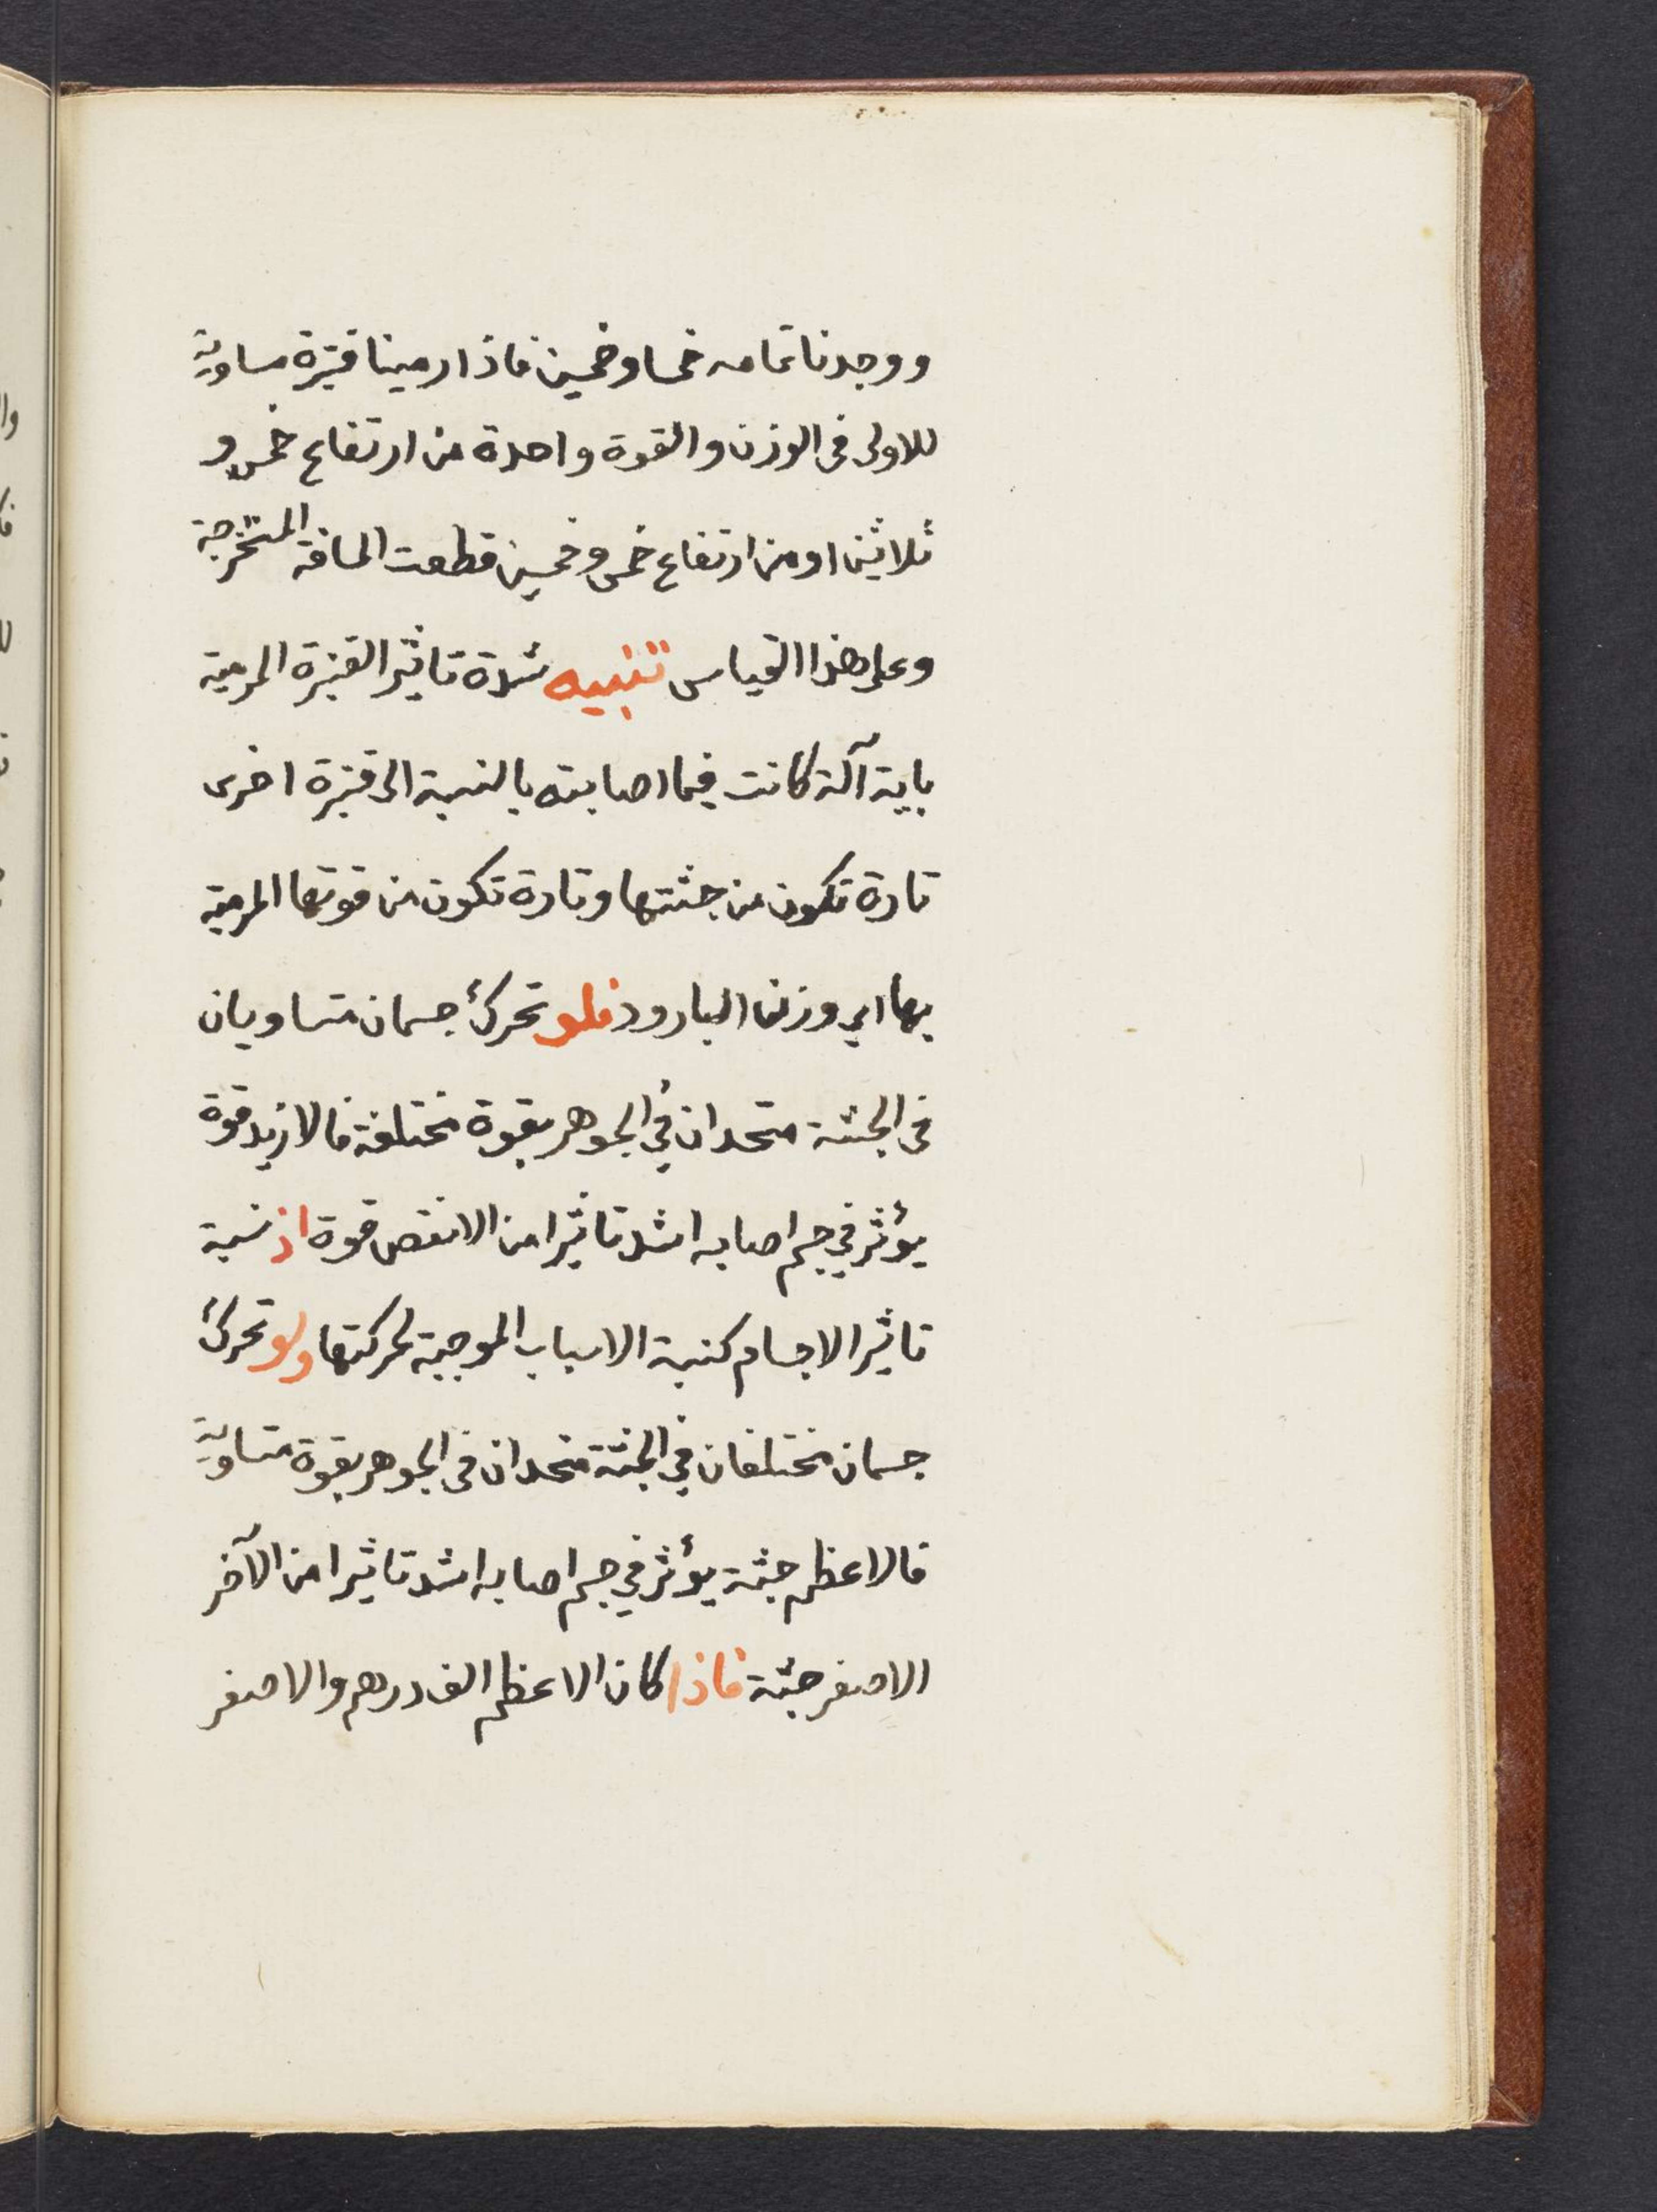 ووجدنا تمامه خمسا وخمسين فاذا رمينا قنبرة مساوية
للاولى فى الوزن والقوة واحدة من ارتفاع خمس و
ثلاثين او من ارتفاع خمس وخمسين قطعت المسافة المستخرجة
وعلى هذا القياس تنبيه شدة تاثير القنبرة المرمية
باية آلة كانت فيما اصابته بالنسبة الى قنبرة اخرى
تارة تكون من جثتها وتارة تكون من قوتها المرمية
بها اى وزن البارود فلو تحرك جسمان متساويان
فى الجثة متحدان فى الجوهر بقوة مختلفة فالازيد قوة
يؤثر في جسم اصابه اشد تاثيرا من الانقص قوة اذ نسبة
تاثير الاجسام كنسبة الاسباب الموجبة لحركتها ولو تحرك
جسمان مختلفان في الجثة متحدان فى الجوهر بقوة متساوية
فالاعظم جثة يؤثر في جسم اصابه اشد تاثيرا من الآخر
الاصغر جثة فاذا كان الاعظم الف درهم والاصغر